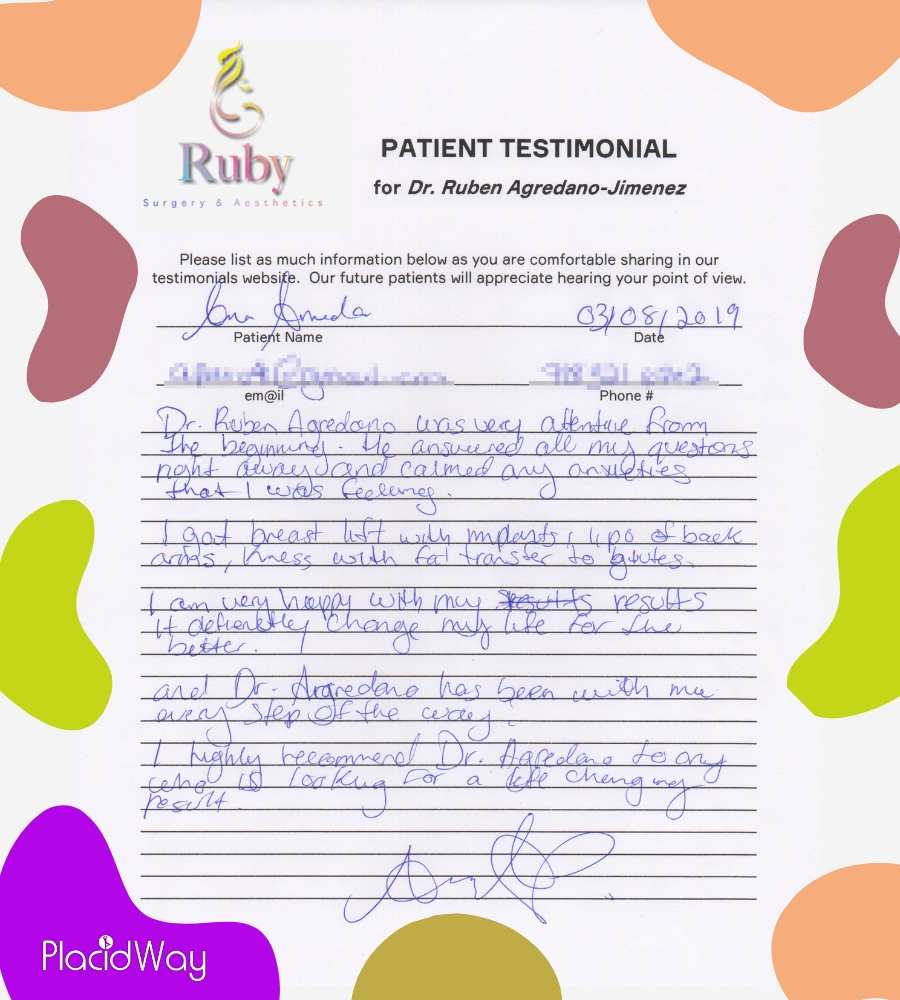 Ruby
Surgery & Aesthetics
PATIENT TESTIMONIAL
for Dr. Ruben Agredano-Jimenez
Please list as much information below as you are comfortable sharing in our
testimonials website. Our future patients will appreciate hearing your point of view.
03/08/2019
Patient Name
Date
em@il
Phone #
Dr. Ruben Agredano was very attentive from
the beginning. He answered all my questions
right away and calmed any anxieties
that I was feeling.
I got breast lift with implants, lipo of back
arms, knees with fat transfer to glutes.
I am very happy with my results results
it definetley change my life for the
better.
and Dr. Agredano has been with me
every step of the way.
I highly reccommend Dr. Agredano to any
who is looking for a life changing
result.
PlacidWay